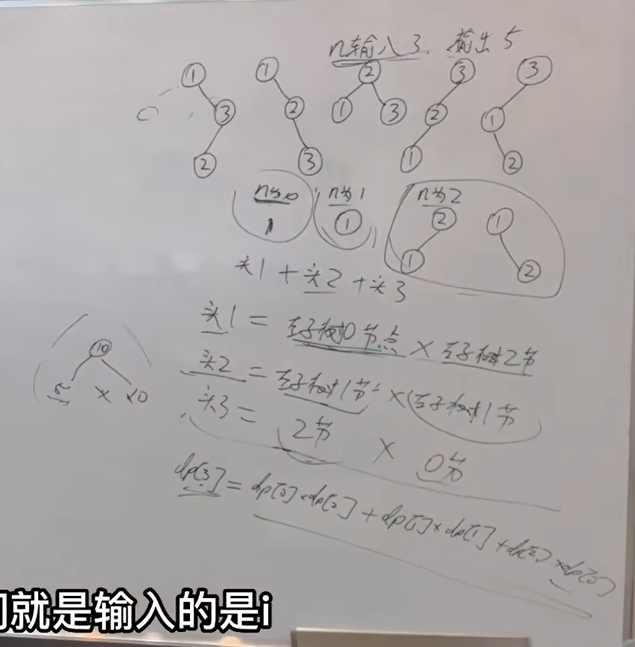 n输入3. 输出5
① ① ② ③ ③
③ ② ① ③ ② ①
② ③ ① ②
n为0 n为1 n为2
1 ① ② ①
① ②
头1+头2+头3
头1 = 左子树0节点 × 右子树2节
头2 = 左子树1节 × 右子树1节
头3 = 2节 × 0节
⑩
5 × 20
dp[3] = dp[0]×dp[2] + dp[1]×dp[1] + dp[2]×dp[0]
就是输入的是i